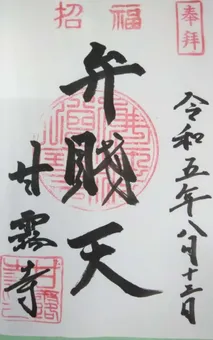 奉拝
令和五年八月十二日
招福
弁財天
甘露寺